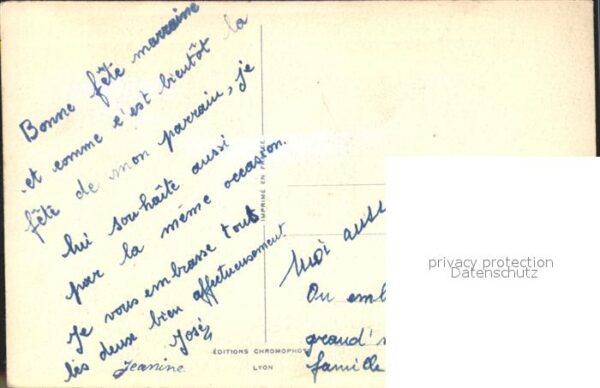 Bonne fête marraine
et comme c'est bientôt la
fête de mon parrain, je
lui souhaite aussi
par la même occasion.
Je vous embrasse tout
les deux bien affectueusement
José
Jeanine
IMPRIMÉ EN FRANCE
EDITIONS CHROMOPHOT
LYON
Moi auss
On emb
grand'
famille
privacy protection
Datenschutz